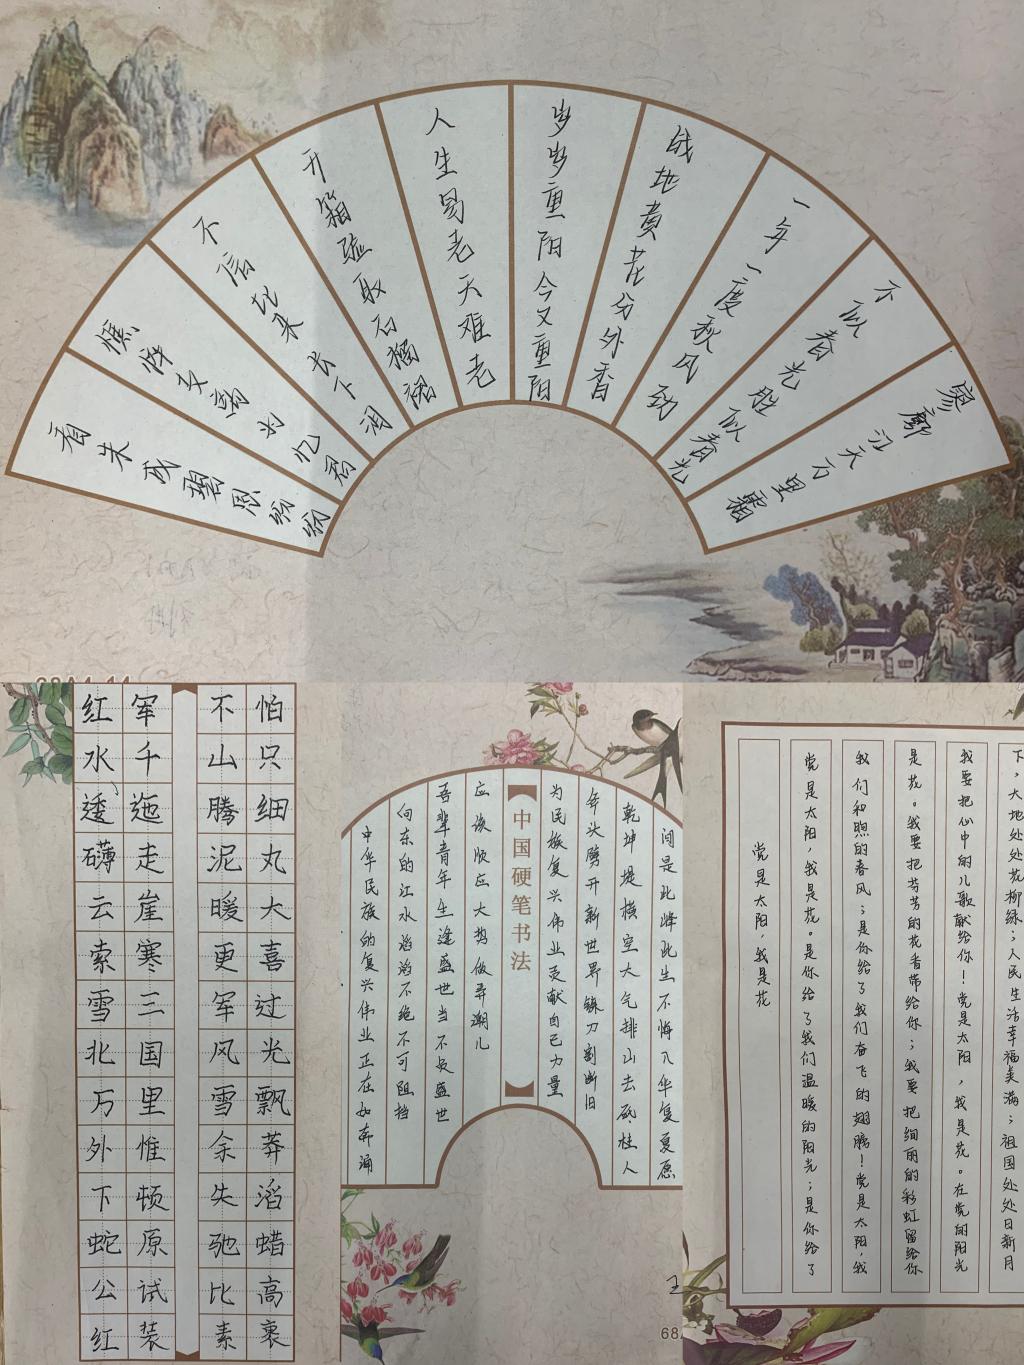 看朱成碧思纷纷
憔悴支离为忆君
不信比来长下泪
开箱验取石榴裙
人生易老天难老
岁岁重阳今又重阳
战地黄花分外香
一年一度秋风劲
不似春光胜似春光
寥廓江天万里霜
红军不怕
水千山只
逶迤腾细
礴走泥丸
云崖暖大
索寒更喜
雪三军过
北国风光
万里雪飘
外惟余莽
下顿失滔
蛇原驰蜡
公试比高
红装素裹
中华民族的复兴伟业正在如奔涌
向东的江水滔滔不绝不可阻挡
吾辈青年生逢盛世当不负盛世
应该顺应大势做弄潮儿
中国硬笔书法
为民族复兴伟业贡献自己力量
斧头劈开新世界镰刀割断旧
乾坤堤横空大气排山去砥柱人
间是此峰此生不悔入华复夏愿
党是太阳，我是花
党是太阳，我是花。是你给了我们温暖的阳光；是你给了
我们和煦的春风；是你给了我们奋飞的翅膀！党是太阳，我
是花。我要把芬芳的花香带给你；我要把绚丽的彩虹留给你
我要把心中的儿歌献给你！党是太阳，我是花。在党的阳光
下，大地处处花柳绿；人民生活幸福美满；祖国处处日新月